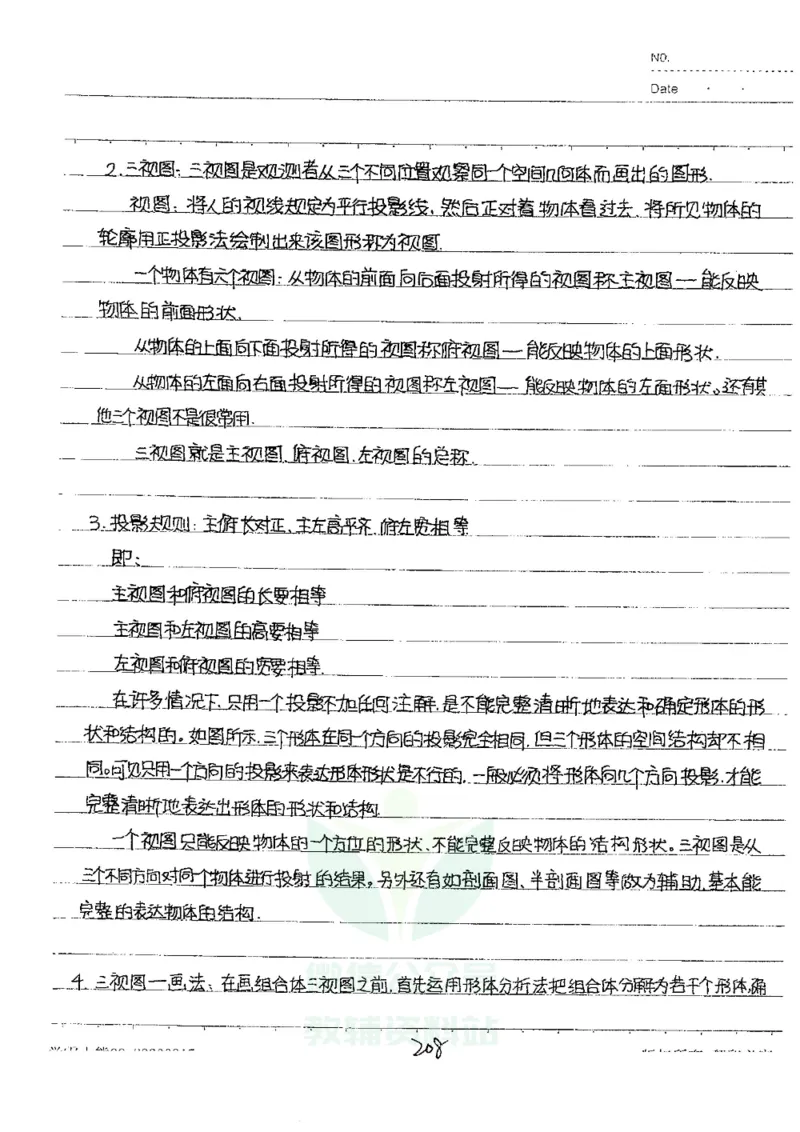 NO.
Date
2.三视图:三视图是观测者从三个不同位置观察同一个空间几何体而画出的图形.
视图:将人的视线规定为平行投影线,然后正对着物体看过去,将所见物体的
轮廓用正投影法绘制出来该图形称为视图.
一个物体有六个视图:从物体的前面向后面投射所得的视图称主视图——能反映
物体的前面形状.
从物体的上面向下面投射所得的视图称俯视图——能反映物体的上面形状.
从物体的左面向右面投射所得的视图称左视图——能反映物体的左面形状。还有其
他三个视图不是很常用.
三视图就是主视图.俯视图.左视图的总称.
3.投影规则:主俯长对正、主左高平齐.俯左宽相等
即:
主视图和俯视图的长要相等
主视图和左视图的高要相等
左视图和俯视图的宽要相等.
在许多情况下,只用一个投影不加任何注解,是不能完整清晰地表达和确定形体的形
状和结构的。如图所示,三个形体在同一个方向的投影完全相同,但三个形体的空间结构却不相
同。可见只用一个方向的投影来表达形体形状是不行的.一般必须将形体向几个方向投影,才能
完整清晰地表达出形体的形状和结构.
一个视图只能反映物体的一个方位的形状、不能完整反映物体的结构形状。三视图是从
三个不同方向对同一个物体进行投射的结果。另外还有如剖面图、半剖面图等做为辅助,基本能
完整的表达物体的结构.
4.三视图一画法:在画组合体三视图之前,首先运用形体分析法把组合体分解为若干个形体,确
教辅资料站
208